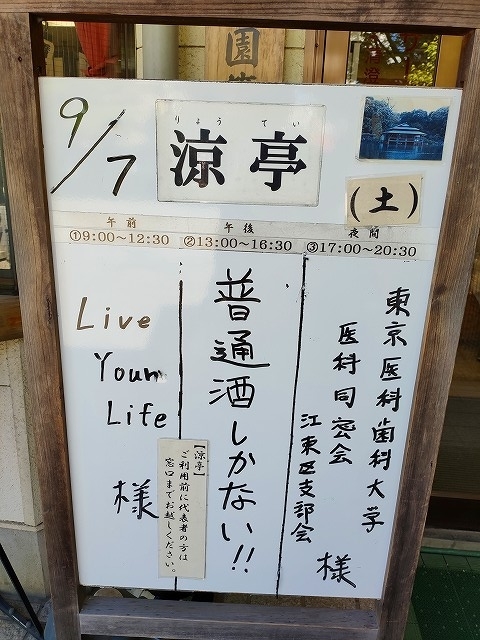 園
9/7
りょうてい
涼亭
(土)
午前
①9:00～12:30
午後
②13:00～16:30
夜間
③17:00～20:30
Live
Your
Life
様
普通酒しかない!!
東京医科歯科大学
医科同窓会
江東区支部会
様
【涼亭】
ご利用前に代表者の方は
窓口までお越しください。